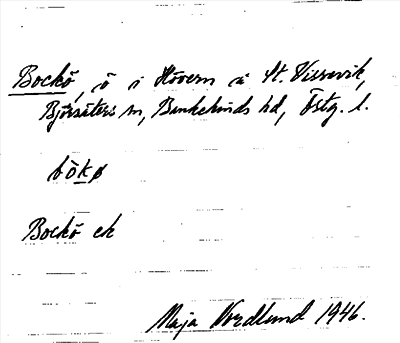 Bockö, ö i Hövern å St. Vissevik,
Björsäters sn, Bankekinds hd, Östg. l.
bòkø
Bockö ek
Maja Nordlund 1946.